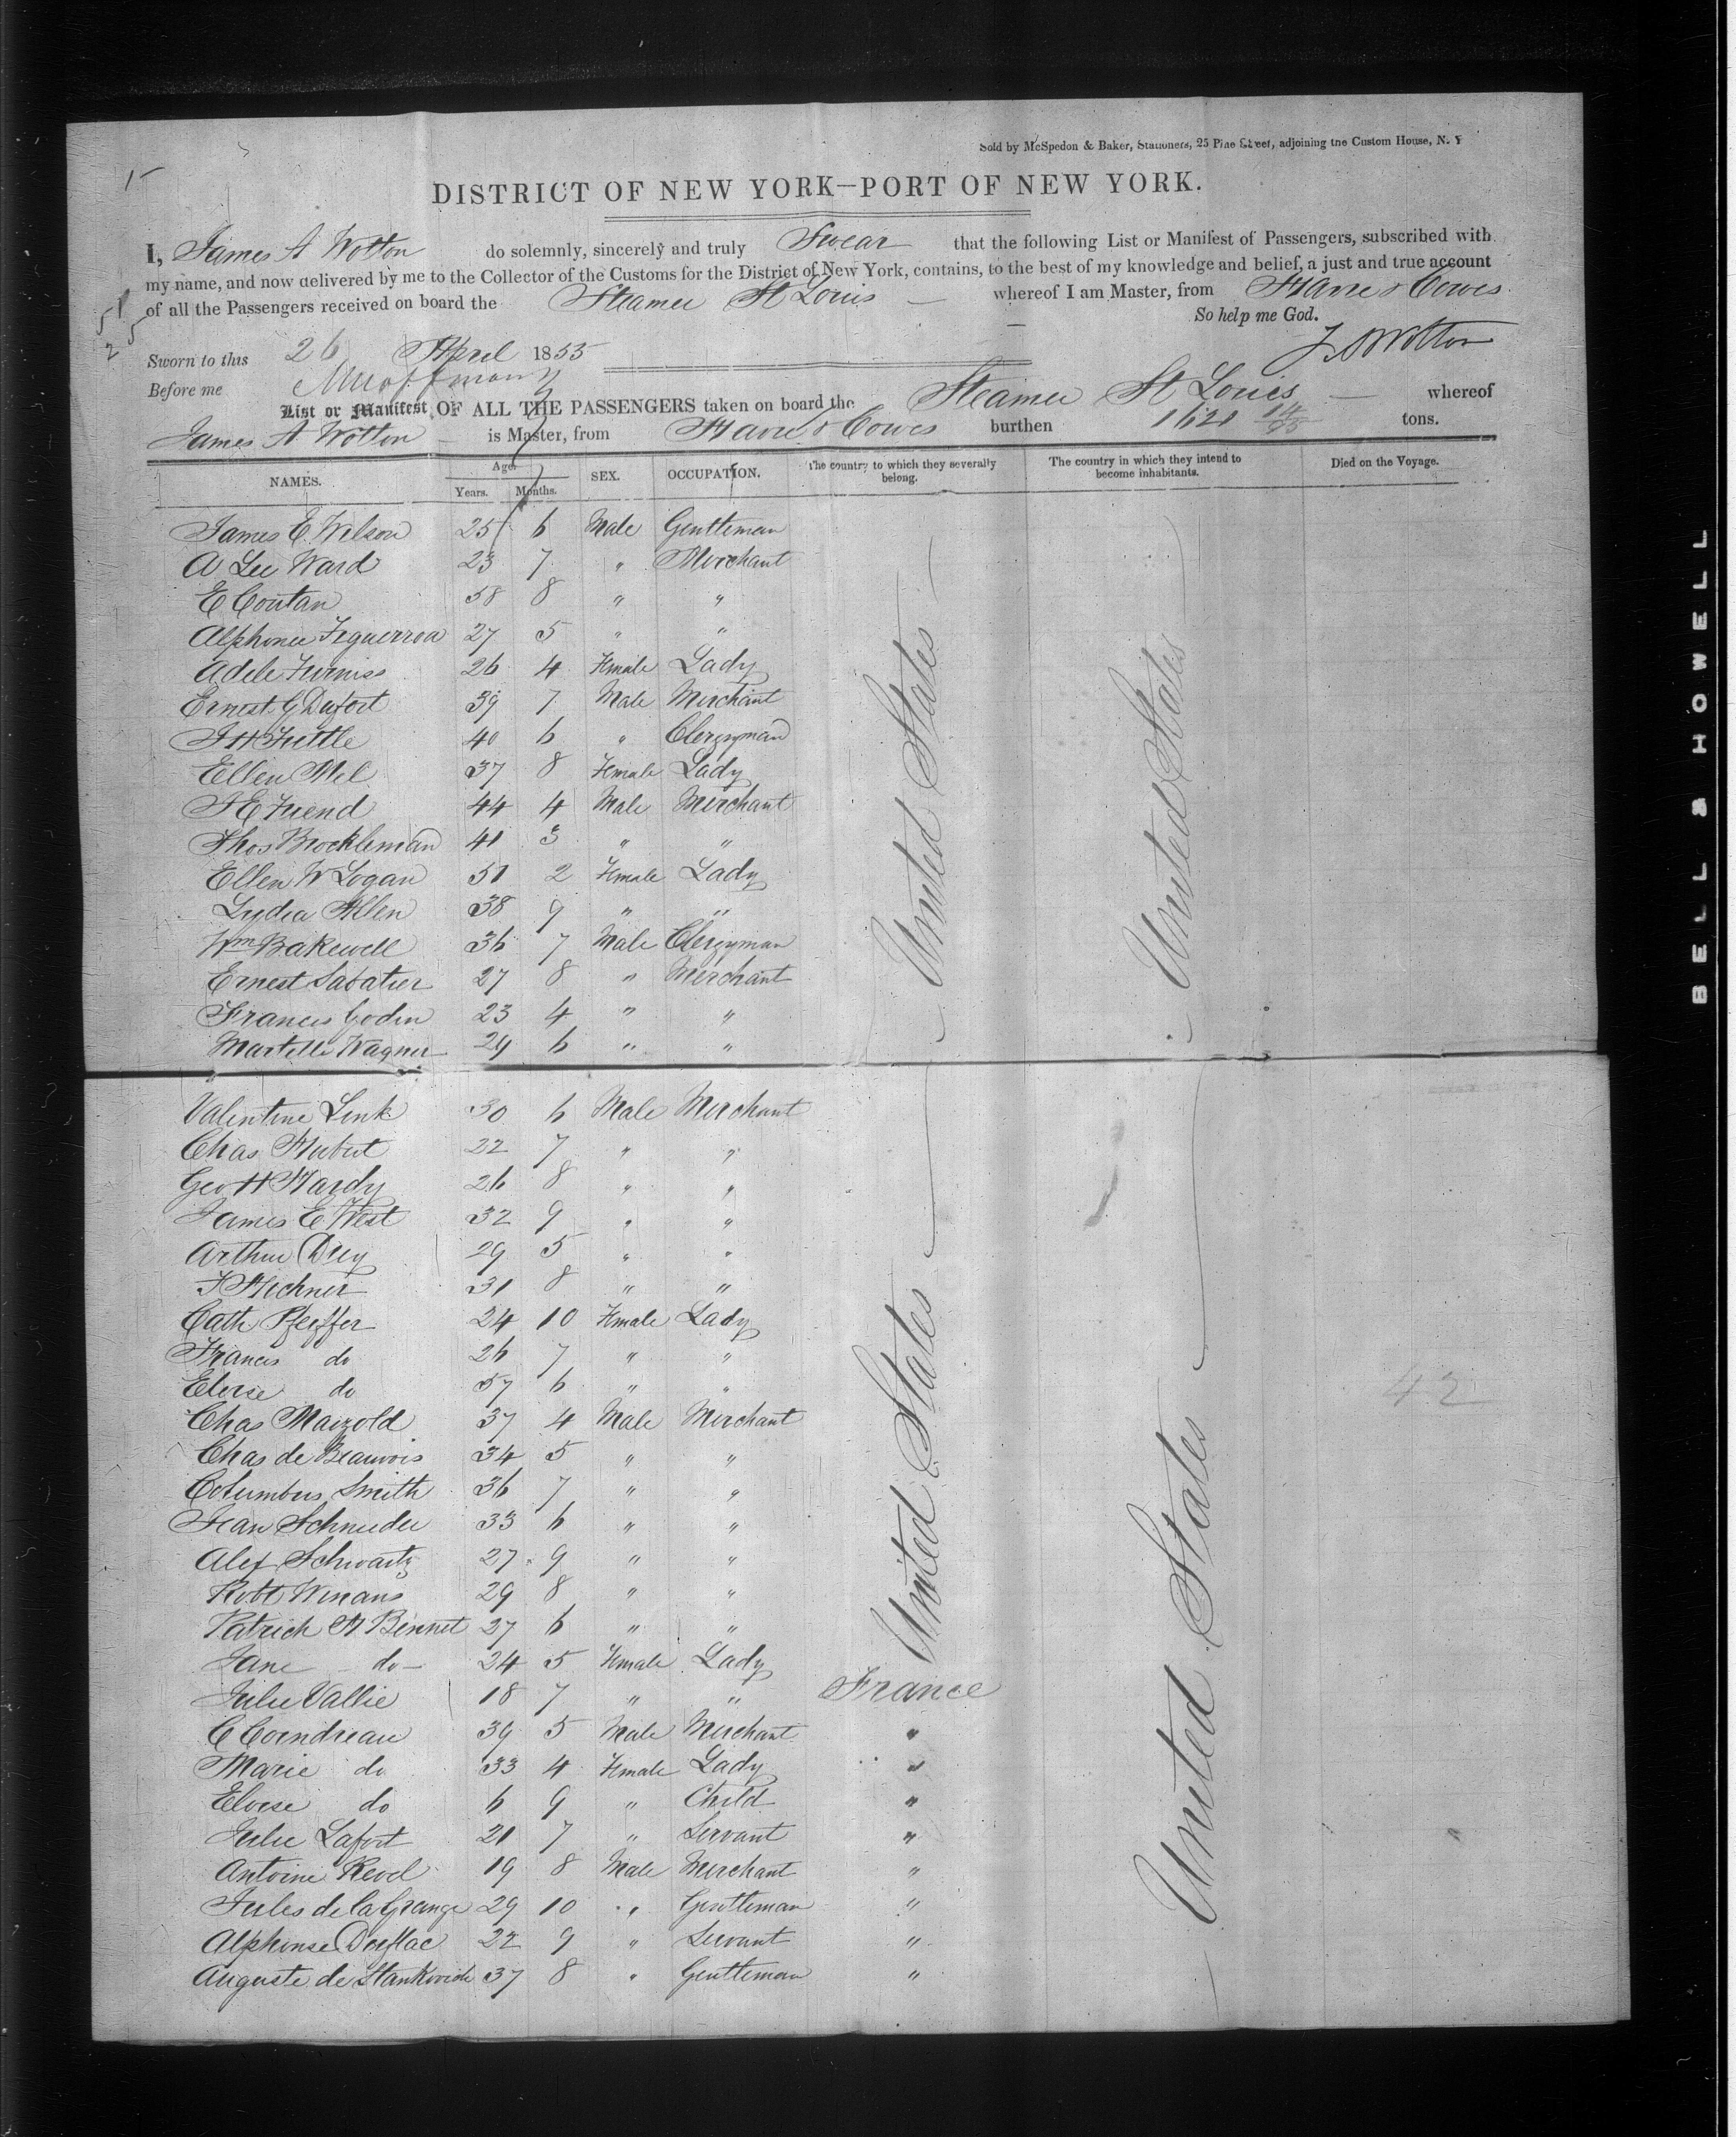 Sold by McSpedon & Baker, Stationers, 25 Pine Street, adjoining the Custom House, N. Y
DISTRICT OF NEW YORK—PORT OF NEW YORK.
I, James A Wotton do solemnly, sincerely and truly Swear that the following List or Manifest of Passengers, subscribed with
my name, and now delivered by me to the Collector of the Customs for the District of New York, contains, to the best of my knowledge and belief, a just and true account
of all the Passengers received on board the Steamer St Louis — whereof I am Master, from Havre & Cowes
So help me God.
Sworn to this 26 April 1855 J A Wotton
Before me
List or Manifest OF ALL THE PASSENGERS taken on board the Steamer St Louis — whereof
James A Wotton is Master, from Havre & Cowes burthen 1621 14/95 tons.
NAMES. Age. Years. Months. SEX. OCCUPATION. The country to which they severally belong. The country in which they intend to become inhabitants. Died on the Voyage.
James E. Wilson 25 6 Male Gentleman
A Lee Ward 23 7 " Merchant
E Coutan 58 8 " "
Alphonse Figuerroa 27 5 " "
Adele Furniss 26 4 Female Lady
Ernest G Dufort 39 7 Male Merchant
J H Tuttle 40 6 " Clergyman
Ellen Mel 37 8 Female Lady
J E Friend 44 4 Male Merchant
Thos Brockleman 41 3 " "
Ellen W Logan 51 2 Female Lady
Lydia Allen 38 9 " "
Wm Bakewell 36 7 Male Clergyman
Ernest Sabatier 27 8 " Merchant
Francis Godin 23 4 " "
Martelle Wagner 29 6 " "
United States
United States
Valentine Link 30 6 Male Merchant
Chas Hubert 22 7 " "
Geo H Hardy 26 8 " "
James E West 32 9 " "
Arthur Dey 29 5 " "
F Hechner 31 8 " "
Cath Pfeiffer 24 10 Female Lady
Francis do 26 7 " "
Eloise do 57 6 " "
Chas Maizold 37 4 Male Merchant
42
Chas de Beauvois 34 5 " "
Columbus Smith 36 7 " "
Jean Schneider 33 6 " "
Alex Schwartz 27 9 " "
Robt Winans 29 8 " "
Patrick H Bennet 27 6 " "
Jane — do — 24 5 Female Lady
United States
Julie Vallie 18 7 " " France
C Coendreau 39 5 Male Merchant "
Marie do 33 4 Female Lady "
Eloise do 6 9 " Child "
Julie Lafort 21 7 " Servant "
Antoine Revel 19 8 Male Merchant "
Jules de la Grange 29 10 " Gentleman "
Alphonse Deeflac 22 9 " Servant "
Auguste de Stankovich 37 8 " Gentleman "
United States
BELL & HOWELL